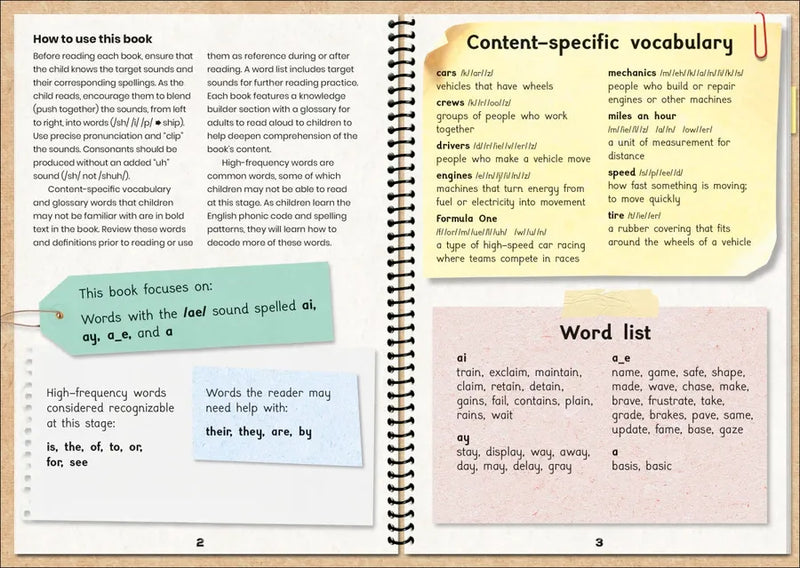 How to use this book
Before reading each book, ensure that
the child knows the target sounds and
their corresponding spellings. As the
child reads, encourage them to blend
(push together) the sounds, from left
to right, into words (/sh/ /i/ /p/ ➡ ship).
Use precise pronunciation and "clip"
the sounds. Consonants should be
produced without an added "uh"
sound (/sh/ not /shuh/).
Content-specific vocabulary
and glossary words that children
may not be familiar with are in bold
text in the book. Review these words
and definitions prior to reading or use
them as reference during or after
reading. A word list includes target
sounds for further reading practice.
Each book features a knowledge
builder section with a glossary for
adults to read aloud to children to
help deepen comprehension of the
book's content.
High-frequency words are
common words, some of which
children may not be able to read
at this stage. As children learn the
English phonic code and spelling
patterns, they will learn how to
decode more of these words.
This book focuses on:
Words with the /ae/ sound spelled ai,
ay, a_e, and a
High-frequency words
considered recognizable
at this stage:
is, the, of, to, or,
for, see
Words the reader may
need help with:
their, they, are, by
2
Content-specific vocabulary
cars /k//ar//z/
vehicles that have wheels
crews /k//r//oo//z/
groups of people who work
together
drivers /d//r//ie//v//er//z/
people who make a vehicle move
engines /e//n//j//i//n//z/
machines that turn energy from
fuel or electricity into movement
Formula One
/f//or//m//ue//l//uh/ /w//u//n/
a type of high-speed car racing
where teams compete in races
mechanics /m//eh//k//a//n//i//k//s/
people who build or repair
engines or other machines
miles an hour
/m//ie//l//z/ /a//n/ /ow//er/
a unit of measurement for
distance
speed /s//p//ee//d/
how fast something is moving;
to move quickly
tire /t//ie//er/
a rubber covering that fits
around the wheels of a vehicle
Word list
ai
train, exclaim, maintain,
claim, retain, detain,
gains, fail, contains, plain,
rains, wait
ay
stay, display, way, away,
day, may, delay, gray
a_e
name, game, safe, shape,
made, wave, chase, make,
brave, frustrate, take,
grade, brakes, pave, same,
update, fame, base, gaze
a
basis, basic
3